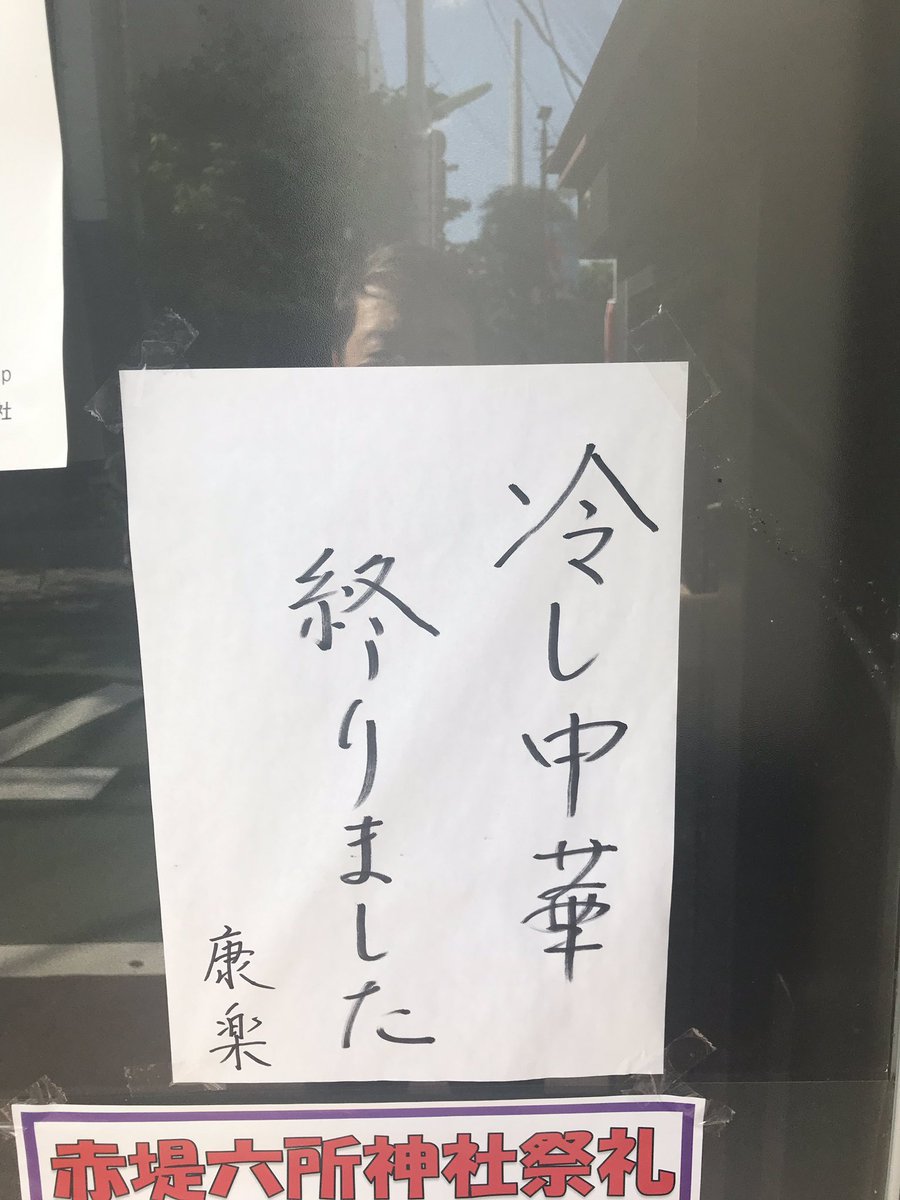 冷し中華
終りました
康楽
赤堤六所神社祭礼
p
社